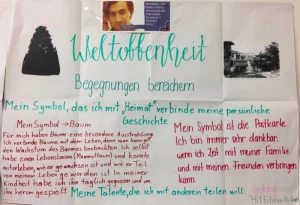 Weltoffenheit
Begegnungen bereichern
Mein Symbol, das ich mit "Heimat" verbinde meine persönliche
Geschichte
Mein Symbol → Baum
Für mich haben Bäume eine besondere Ausstrahlung.
Ich verbinde Bäume mit dem Leben, denn man kann
den Wachstum des Baumes beobachten. Ich selbst
habe einen Lebensbaum (Mammutbaum) und konnte
miterleben, wie er gewachsen ist und wie er Teil
meiner Umgebung geworden ist. In meiner
Kindheit habe ich ihn täglich gegossen und um
ihn herum gespielt.
Mein Symbol ist die Postkarte.
Ich bin immer sehr dankbar,
wenn ich Zeit mit meiner Familie
und mit meinen Freunden verbringen
kann.
Meine Talente, die ich mit anderen teilen will:
Hilfsbereitschaft